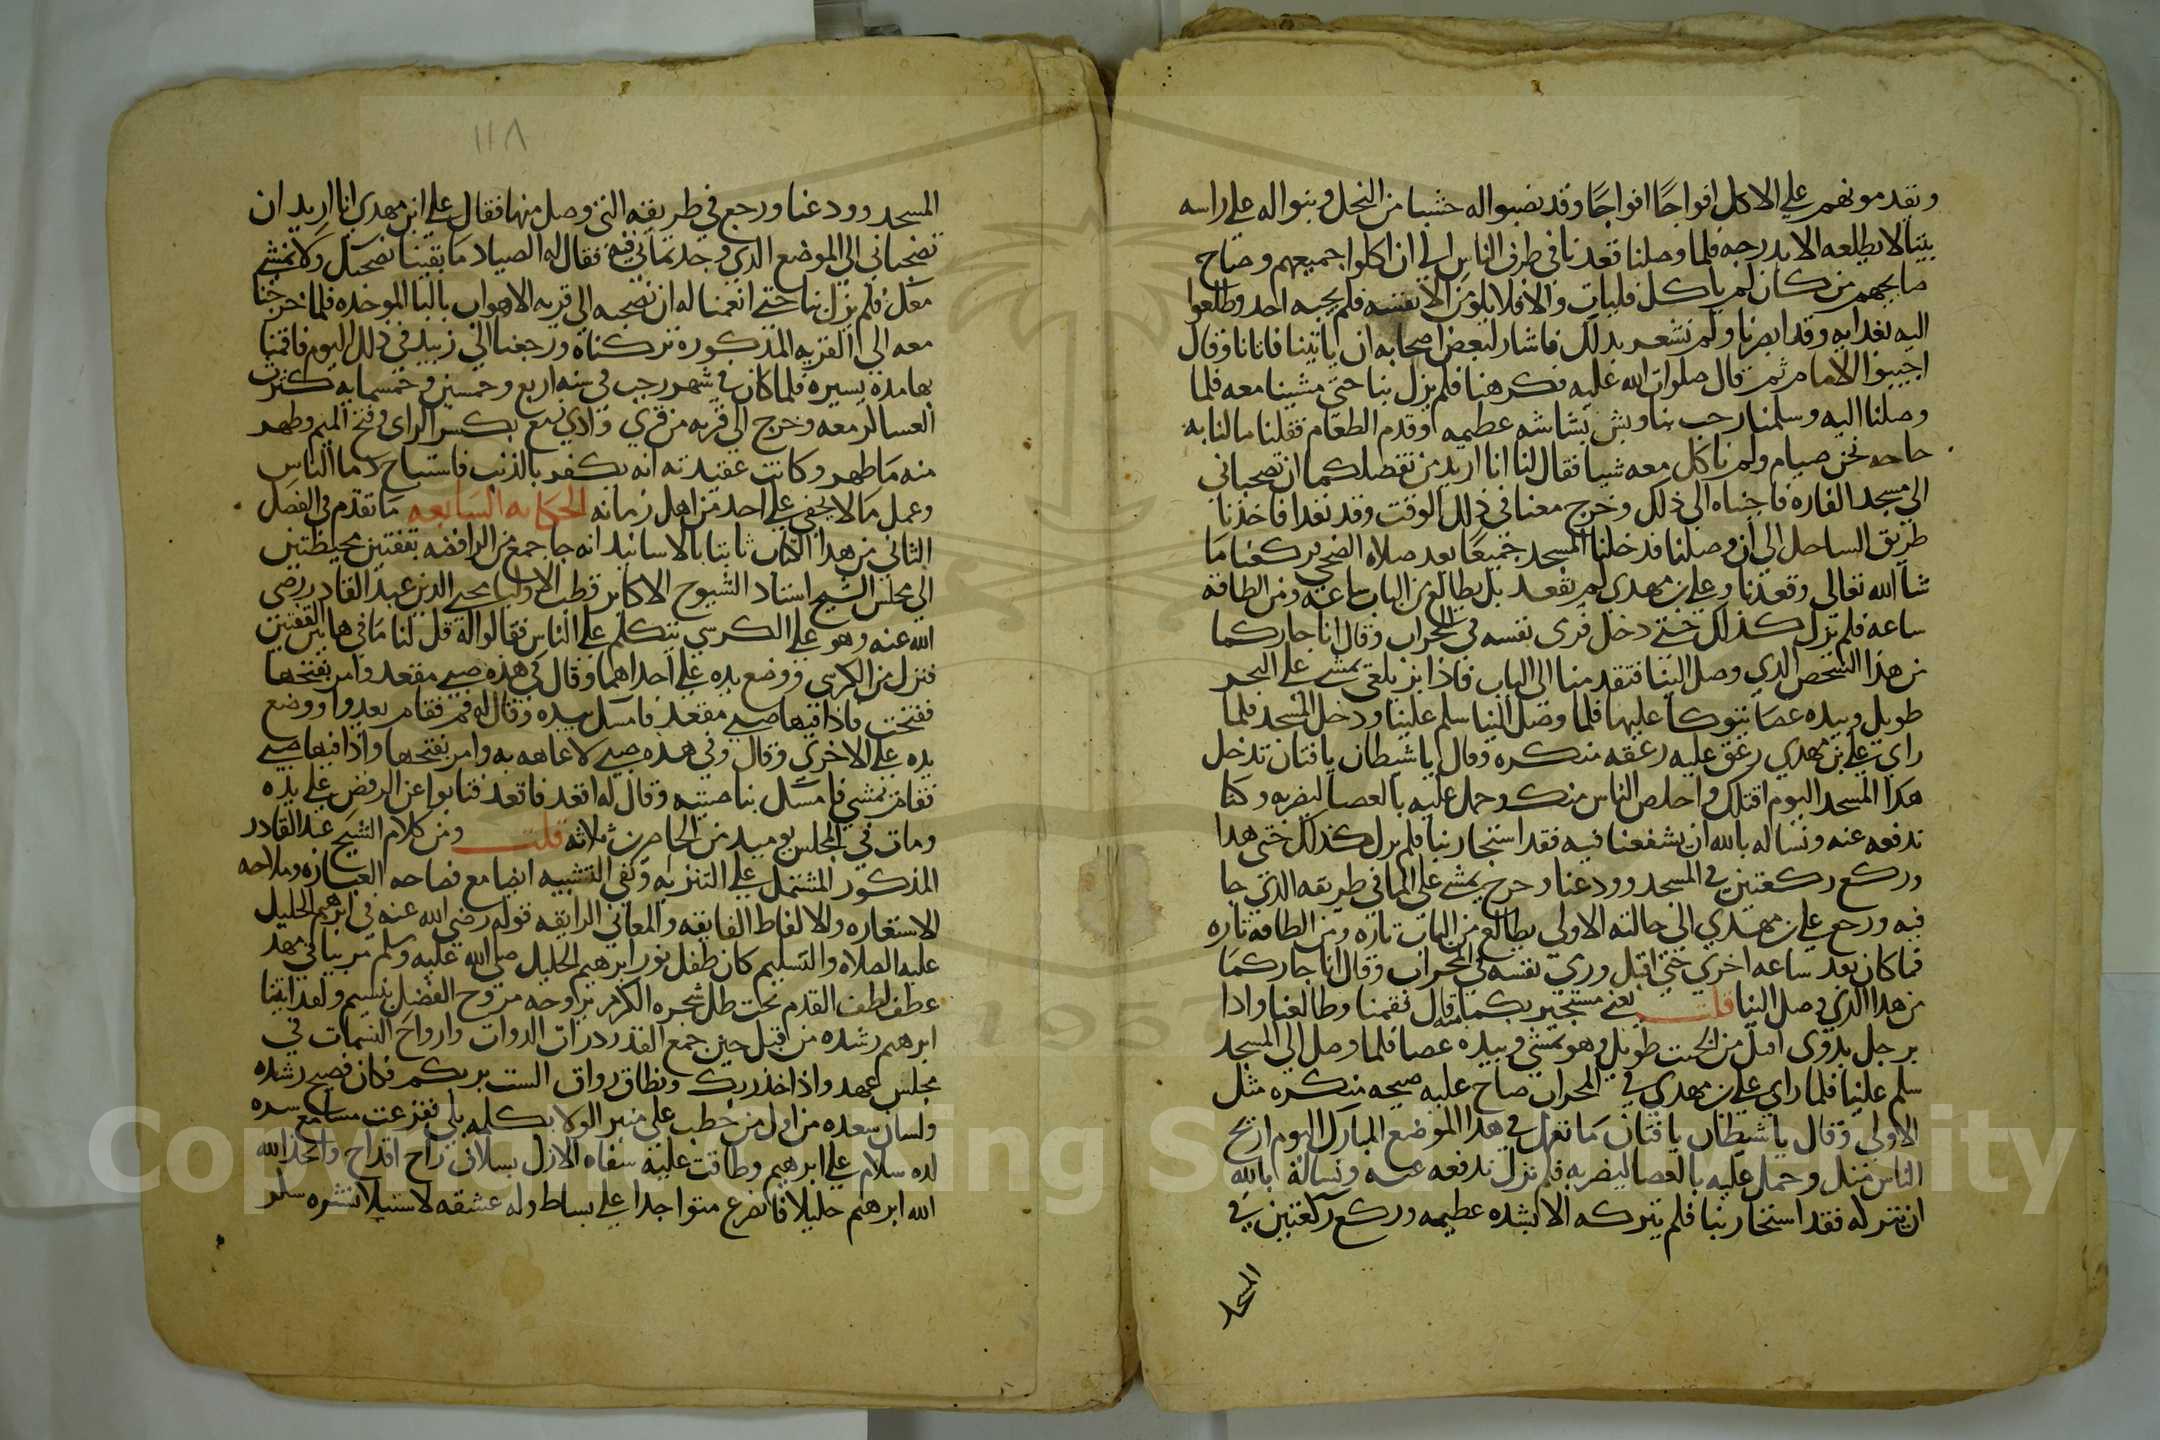 ويقدمونهم على الاكل افواجًا افواجًا وقد نصبوا له خشبا من النخل وبنوا له على راسه
بيتا لا يطلعه الا بدرجه فلما وصلنا قعدنا في طرف الناس الى ان اكلوا جميعهم وصاح
صايحهم من كان لم ياكل فليات والا فلا يلومن الا نفسه فلم يجبه احد وطلعوا
اليه بغدايه وقد ابصرنا ولم نشعر بذلك فاشار لبعض اصحابه ان ياتينا فاتانا وقال
اجيبوا الامام ثم قال صلوات الله عليه فكرهنا فلم يزل بنا حتى مشينا معه فلما
وصلنا اليه وسلمنا رحب بنا وبش بشاشه عظيمه وقدم الطعام فقلنا ما لنا به
حاجه نحن صيام ولم ناكل معه شيا فقال لنا انا اريد من تفضلكما ان تصحباني
الى مسجد الفازه فاجبناه الى ذلك وخرج معنا في ذلك الوقت وقد تغدا فاخذنا
طريق الساحل الى ان وصلنا فدخلنا المسجد جميعًا بعد صلاه الضحى فركعنا ما
شا الله تعالى وقعدنا وعلي بن مهدي لم يقعد بل يطالع من الباب ساعه ومن الطاقه
ساعه فلم يزل كذلك حتى دخل فرمى نفسه في المحراب وقال انا جاركما
من هذا الشخص الذي وصل الينا فتقدمنا الى الباب فاذا بزيلعي يمشي على البحر
طويل وبيده عصا يتوكا عليها فلما وصل الينا سلم علينا ودخل المسجد فلما
راى علي بن مهدي زعق عليه زعقه منكره وقال يا شيطان يا فتان تدخل
هذا المسجد اليوم اقتلك واخلص الناس منك وحمل عليه بالعصا ليضربه وكنا
ندفعه عنه ونساله بالله ان يشفعنا فيه فقد استجار بنا فلم يزل كذلك حتى هدا
وركع ركعتين في المسجد وودعنا وخرج يمشي على الما في طريقه الذي جا
فيه ورجع علي بن مهدي الى حالته الاولى يطالع من الباب تاره ومن الطاقه تاره
فما كان بعد ساعه اخرى حتى اقبل ورمى نفسه في المحراب وقال انا جاركما
من هذا الذي وصل الينا قلت يعني مستجير بكما منه قال فقمنا وطالعنا واذا
برجل بدوى اقبل من الخبت طويل وهو يمشي وبيده عصا فلما وصل الى المسجد
سلم علينا فلما راى علي بن مهدي في المحراب صاح عليه صيحه منكره مثل
الاولى وقال يا شيطان يا فتان ما تعمل في هذا الموضع المبارك اليوم اريح
الناس منك وحمل عليه بالعصا ليضربه فلم نزل ندفعه عنه ونساله بالله
ان يتركه فقد استجار بنا فلم يتركه الا بشده عظيمه وركع ركعتين في
المسجد
١١٨
المسجد وودعنا ورجع في طريقه التي وصل منها فقال علي ابن مهدي انا اريد ان
تصحباني الى الموضع الذي وجدتماني فيه فقال له الصياد ما بقينا نصحبك ولا نمشي
معك فلم يزل بنا حتى انعمنا له ان نصحبه الى قريه الاهواب بالبا الموحده فلما خرجنا
معه الى القريه المذكوره تركناه ورجعنا الى زبيد في ذلك اليوم فاقمنا
بها مده يسيره فلما كان في شهر رجب في سنه اربع وخمسين وخمسمايه كثرت
العساكر معه وخرج الى قريه من قرى وادي زمع بكسر الزاى وفتح الميم وظهر
منه ما ظهر وكانت عقيدته انه يكفر بالذنب فاستباح دما الناس
وعمل ما لا يخفى على احد من اهل زمانه الحكايه السابعه ما تقدم في الفصل
الثاني من هذا الكتاب ثابتا بالاسانيد انه جا جمع من الرافضه بقفتين مخيطتين
الى مجلس الشيخ استاد الشيوخ الاكابر قطب الاوليا محيي الدين عبد القادر رضي
الله عنه وهو على الكرسي يتكلم على الناس فقالوا له قل لنا ما في هاتين القفتين
فنزل من الكرسي ووضع يده على احداهما وقال في هذه صبي مقعد وامر بفتحها
ففتحت فاذا فيها صبي مقعد فامسك بيده وقال له قم فقام يعدوا ووضع
يده على الاخرى وقال وفي هذه صبي لا عاهه به وامر بفتحها واذا فيها صبي
فقام يمشي فامسك بناصيته وقال له اقعد فاقعد فتابوا عن الرفض على يده
ومات في المجلس يوميد من الحاضرين ثلاثه قلت ومن كلام الشيخ عبد القادر
المذكور المشتمل على التنزيه ونفي التشبيه ايضا مع فصاحه العباره وملاحه
الاستعاره والالفاظ الفايقه والمعاني الرايقه قوله رضي الله عنه في ابرهيم الخليل
عليه الصلاه والتسليم كان طفل نور ابرهيم الخليل صلى الله عليه وسلم مربيا في مهد
عطف لطف القدم تحت ظل شجره الكرم يراوحه مروح الفضل بنسيم ولقد اتينا
ابرهيم رشده من قبل حين جمع القدر ذرات الذوات وارواح النسمات في
مجلس عهد واذ اخذ ربك ونطاق رواق الست بربكم فكان فصيح رشده
ولسان سعده من اول من خطب على منبر الولا بكلمه بلى فقرعت مسامع
لده سلام على ابرهيم وطافت عليه سقاه الازل بسلاف راح اقداح واتخذ الله
الله ابرهيم خليلا فانصرع متواجدا على بساط وله عشقه لاستيلا نشوه سكر